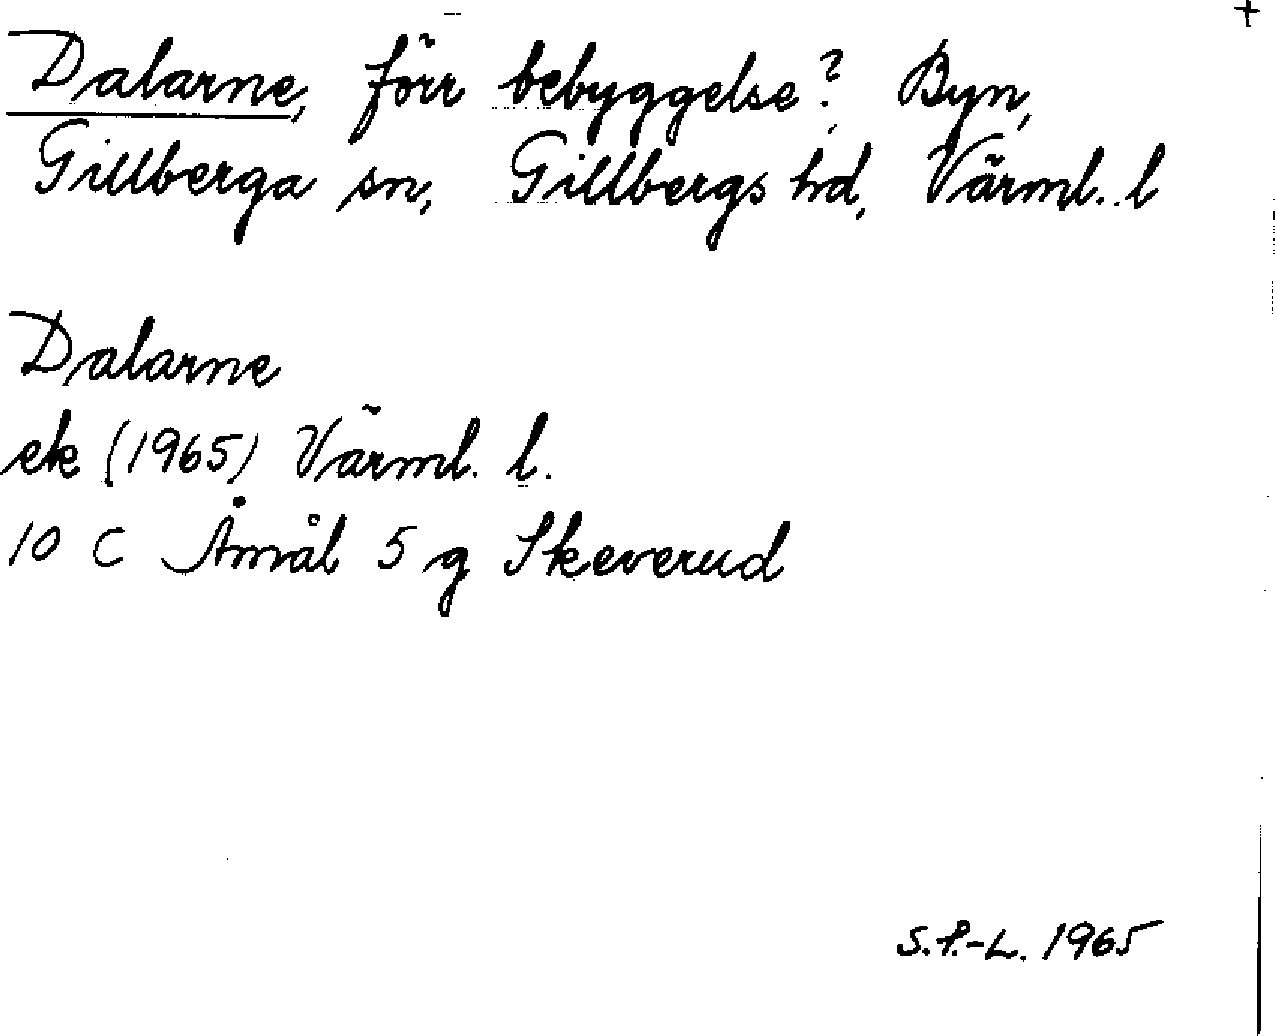 +
Dalarne, förr bebyggelse? Byn,
Gillberga sn, Gillbergs hd, Värml. l
Dalarne
ek (1965) Värml. l.
10 C Åmål 5 g Skeverud
S.P.-L. 1965